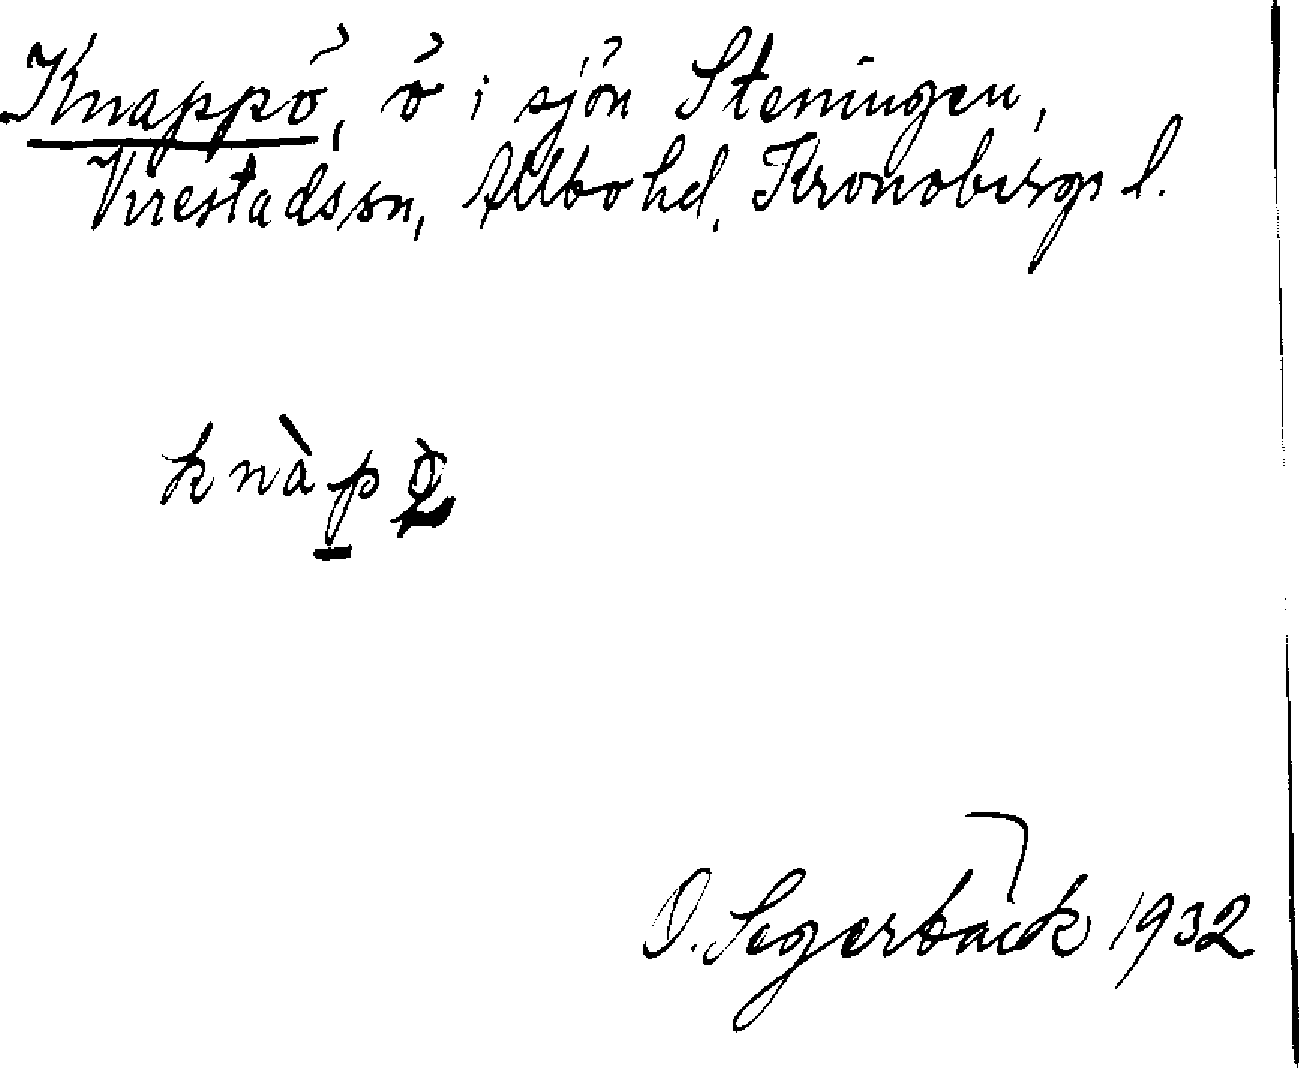 Knappö, ö i sjön Steningen,
Virestads sn, Allbo hd, Kronobergs l.
knàp
O. Segerbäck 1932